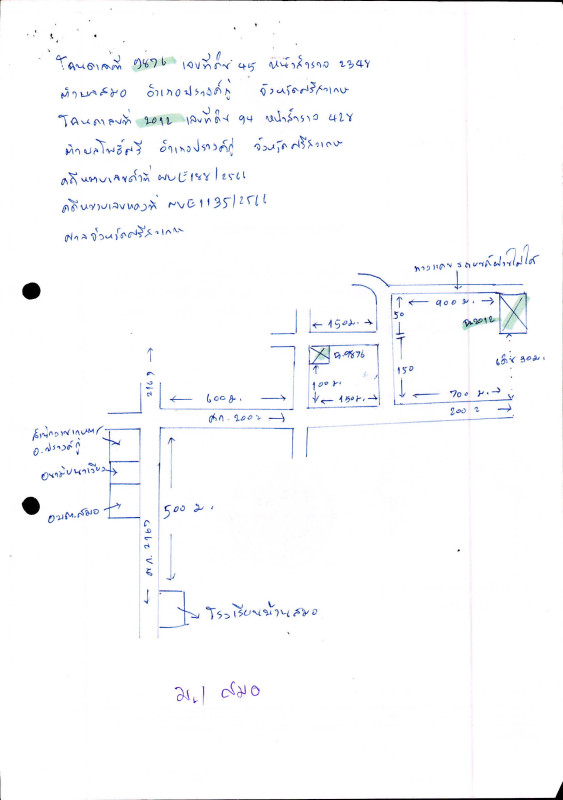 โฉนดเลขที่ 9876 เลขที่ดิน 45 หน้าสำรวจ 2348
ตำบลสมอ อำเภอปรางค์กู่ จังหวัดศรีสะเกษ
โฉนดเลขที่ 2012 เลขที่ดิน 94 หน้าสำรวจ 428
ตำบลโพธิ์ศรี อำเภอปรางค์กู่ จังหวัดศรีสะเกษ
คดีหมายเลขดำที่ ผบE188/2566
คดีหมายเลขแดงที่ ผบE1135/2566
ศาลจังหวัดศรีสะเกษ
ทางแคบ รถยนต์ผ่านไม่ได้
900 ม.
50
ฉ.2012
150 ม.
ฉ.9876
เดิน 30 ม.
150
2167
100 ม.
600 ม.
150 ม.
700 ม.
ศก. 2002
2002
อ.ปรางค์กู่
อนามัยนาเวียง
อบต.สมอ
500 ม.
ศก. 2167
โรงเรียนบ้านสมอ
ม.1 สมอ